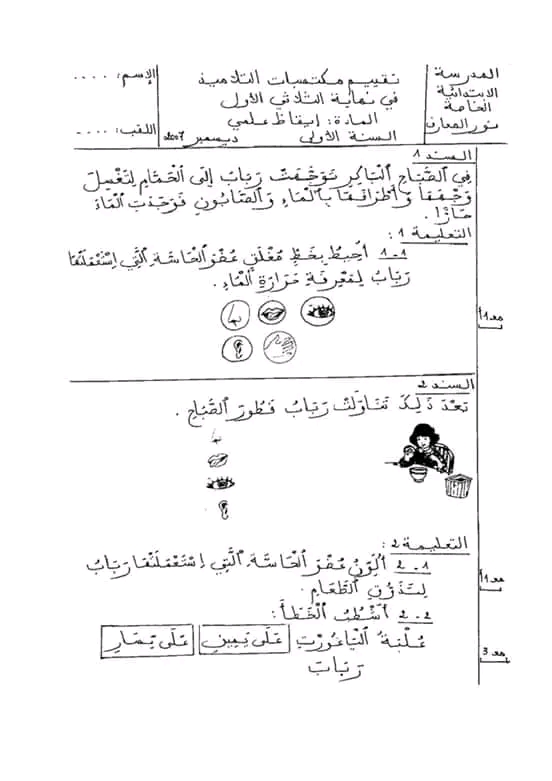 المدرسة
الابتدائية
الخاصة
نور المعارف
تقييم مكتسبات التلاميذ
في نهاية الثلاثي الأول
المادة: إيقاظ علمي
السنة الأولى ديسمبر 2007
الإسم: ....
اللقب: ....
السند 1
فِي الصَّبَاحِ الْبَاكِرِ تَوَجَّهَتْ رَبَابُ إِلَى الْحَمَّامِ لِتَغْسِلَ
وَجْهَهَا وَ أَطْرَافَهَا بِالْمَاءِ وَ الصَّابُونِ فَوَجَدَتِ الْمَاءَ
حَارًّا.
التعليمة 1 :
1-1 أُحِيطُ بِخَطٍّ مُغْلَقٍ عُضْوَ الْحَاسَّةِ الَّتِي اِسْتَعْمَلَتْهَا
رَبَابُ لِمَعْرِفَةِ حَرَارَةِ الْمَاءِ.
مع1أ
السند 2
بَعْدَ ذَلِكَ تَنَاوَلَتْ رَبَابُ فَطُورَ الصَّبَاحِ.
التعليمة 2 :
2-1 أُلَوِّنُ عُضْوَ الْحَاسَّةِ الَّتِي اِسْتَعْمَلَتْهَا رَبَابُ
لِتَذَوُّقِ الطَّعَامِ.
مع1أ
2-2 أَشْطُبُ الْخَطَأَ:
عُلْبَةُ الْيَاغُورْتِ عَلَى يَمِينِ عَلَى يَسَارِ
رَبَابَ
مع3